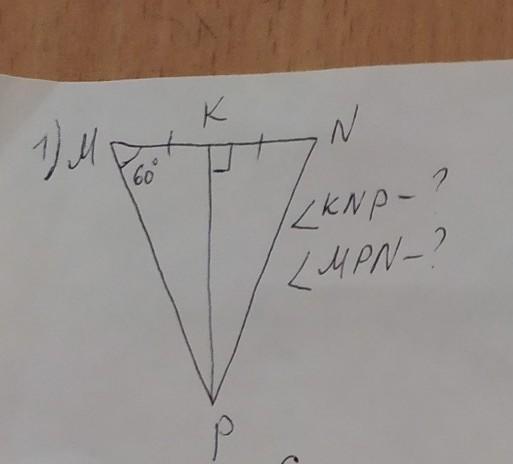 K
1) M N
60°
∠KNP-?
∠MPN-?
P